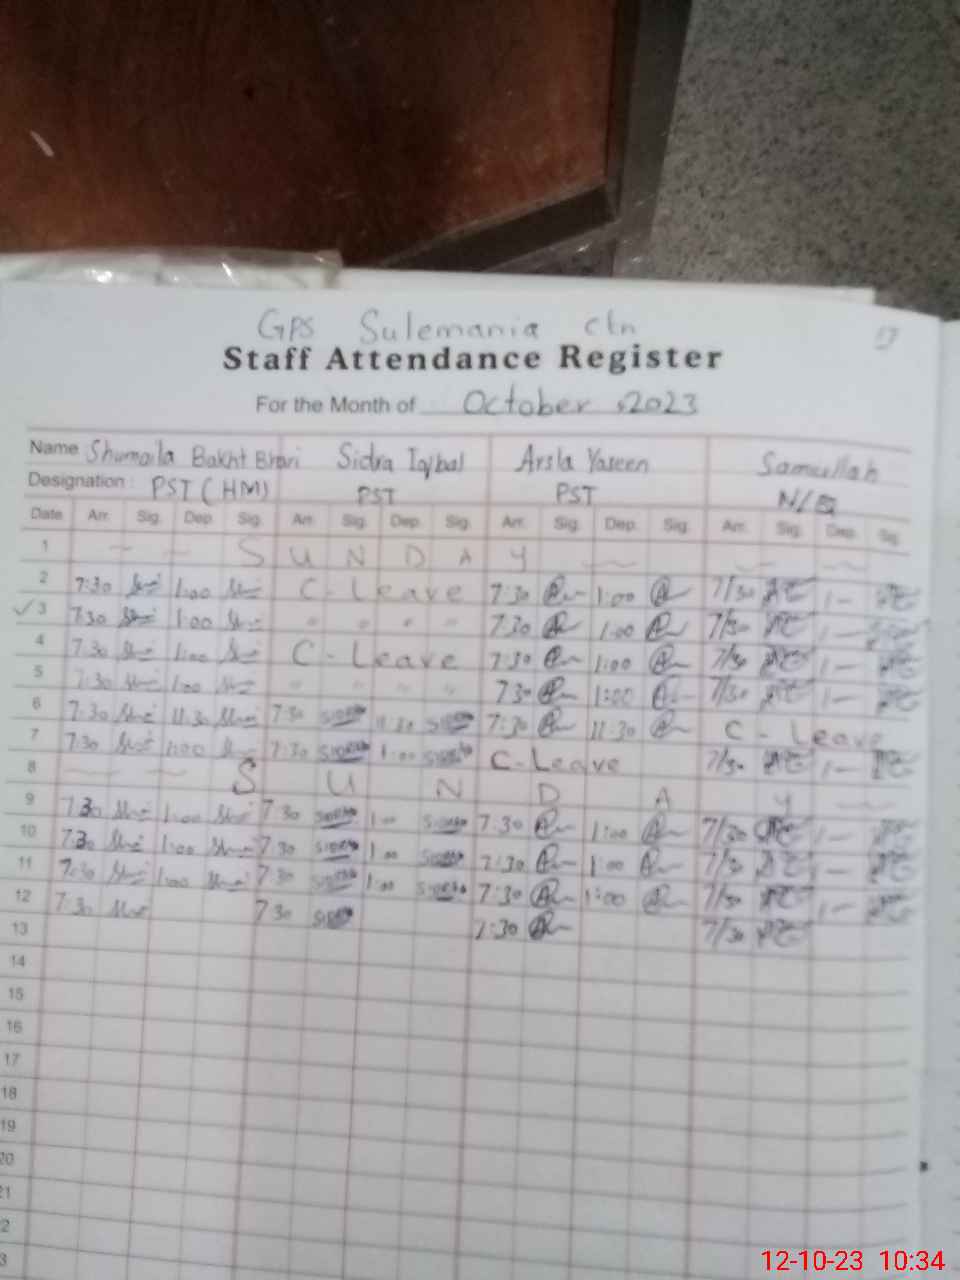 GPS Sulemania ctn
Staff Attendance Register
For the Month of October, 2023
Name Shumaila Bakht Bhari Sidra Iqbal Arsla Yaseen Samiullah
Designation : PST (HM) PST PST N/Q
Date Arr. Sig. Dep. Sig. Arr. Sig. Dep. Sig. Arr. Sig. Dep. Sig. Arr. Sig. Dep. Sig.
1 S U N D A Y
2 7:30 1:00 C-Leave 7:30 1:00 7/30 1—
3 7:30 1:00 " " " " 7:30 1:00 7/30 1—
4 7:30 1:00 C-Leave 7:30 1:00 7/30 1—
5 7:30 1:00 " " " " 7:30 1:00 7/30 1—
6 7:30 11:30 7:30 11:30 7:30 11:30 C-Leave
7 7:30 1:00 7:30 1:00 C-Leave 7/30 1—
8 S U N D A Y
9 7:30 1:00 7:30 1:00 7:30 1:00 7/30 1—
10 7:30 1:00 7:30 1:00 7:30 1:00 7/30 1—
11 7:30 1:00 7:30 1:00 7:30 1:00 7/30 1—
12 7:30 7:30 7:30 7/30
13
14
15
16
17
18
19
20
21
2
3
12-10-23 10:34